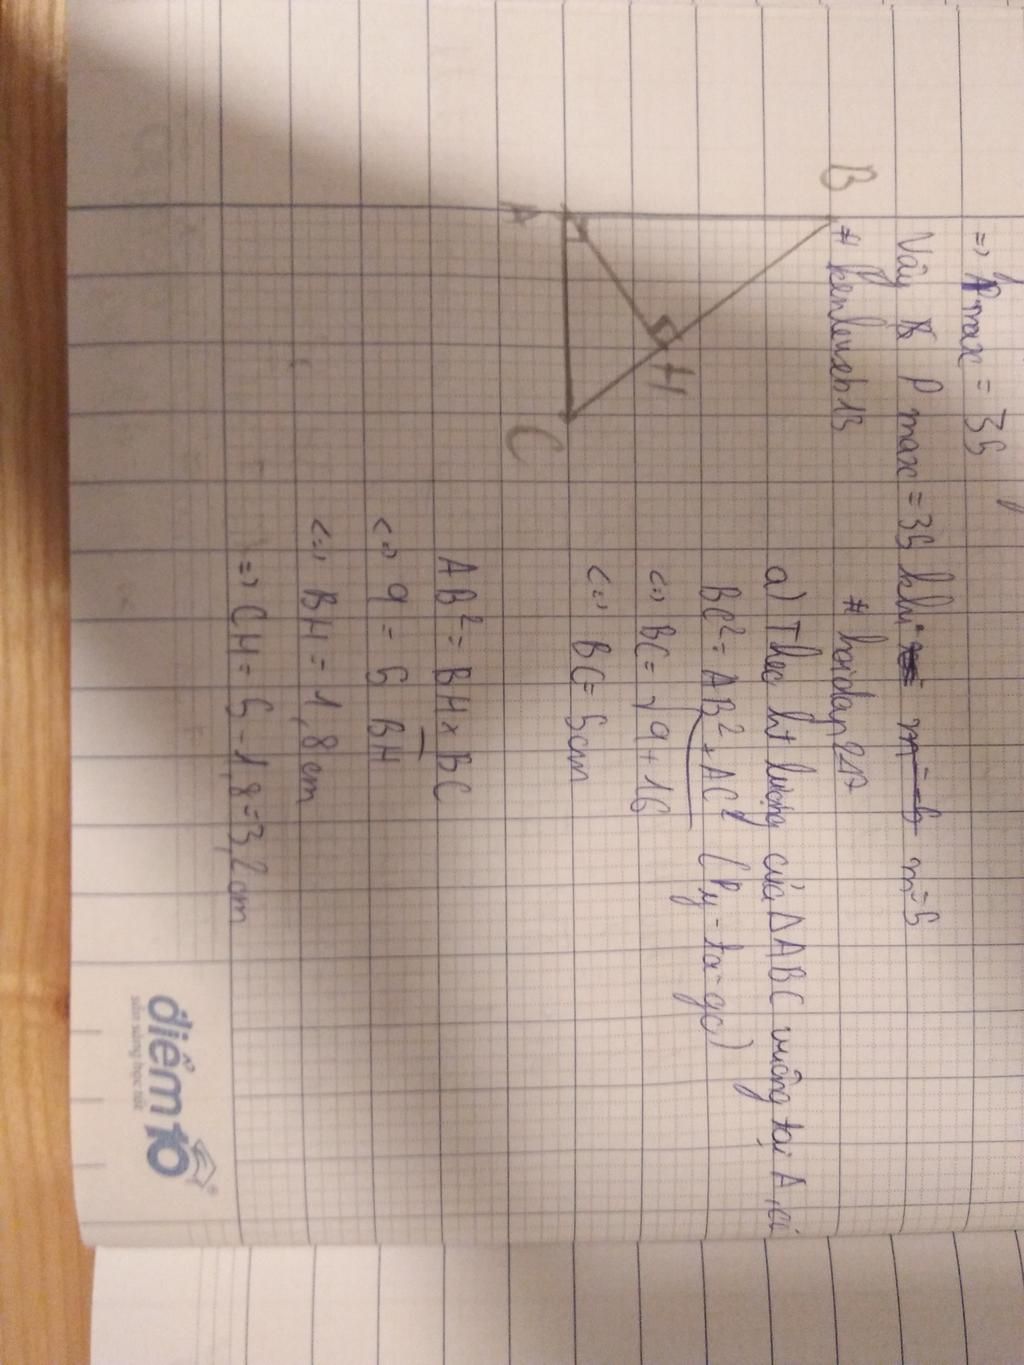 => Pmax = 35
Vậy P max = 35 khi m=5
# kenleuseb13
# hoidap247
B
A
H
C
a) Theo ht lượng của ΔABC vuông tại A, có
BC² = AB² + AC² (Py-ta-go)
<=> BC = √9+16
<=> BC = 5cm
AB² = BH x BC
<=> 9 = 5 BH
<=> BH = 1,8 cm
=> CH = 5 - 1,8 = 3,2 cm
điểm 10
sẵn sàng học tốt